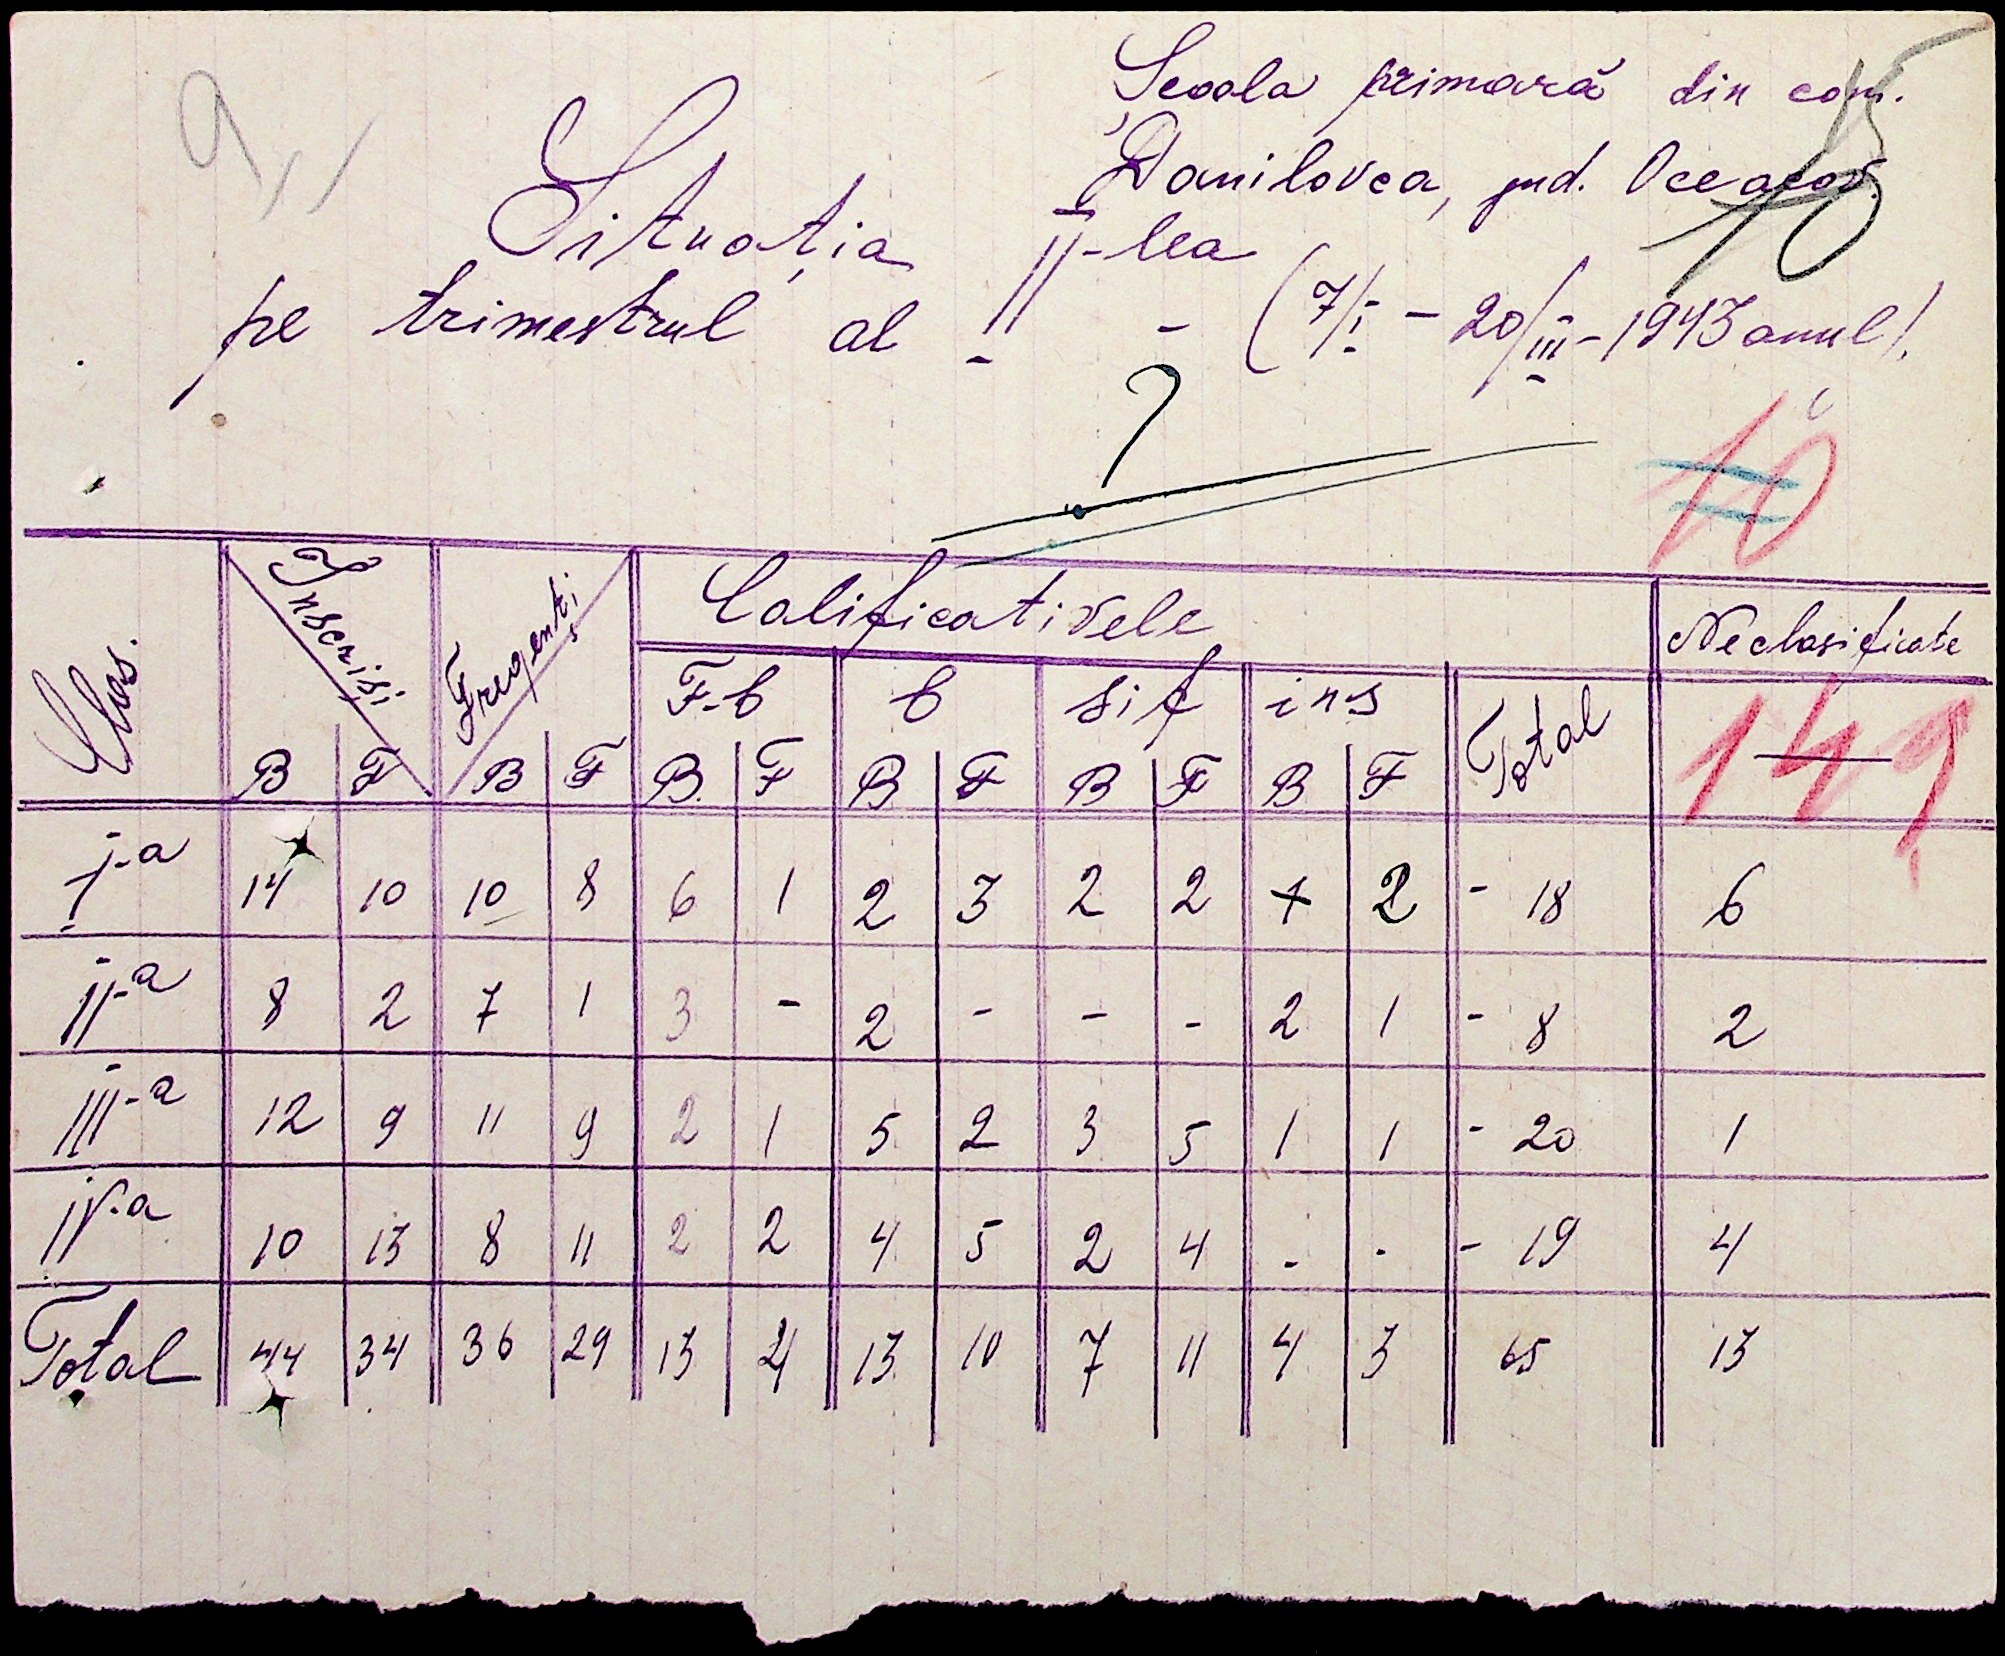 Școala primară din com.
Danilovca, jud. Oceacov.
Situația
pe trimestrul al II-lea - (7/I - 20/III - 1943 anul).
?
10
Clas. Inscriși Fregenți Calificativele Neclasificate
F-b b sif ins Total
B F B F B. F B F B F B F
149
I-a 14 10 10 8 6 1 2 3 2 2 1 2 - 18 6
II-a 8 2 7 1 3 - 2 - - - 2 1 - 8 2
III-a 12 9 11 9 2 1 5 2 3 5 1 1 - 20 1
IV-a 10 13 8 11 2 2 4 5 2 4 - - - 19 4
Total 44 34 36 29 13 4 13 10 7 11 4 3 65 13